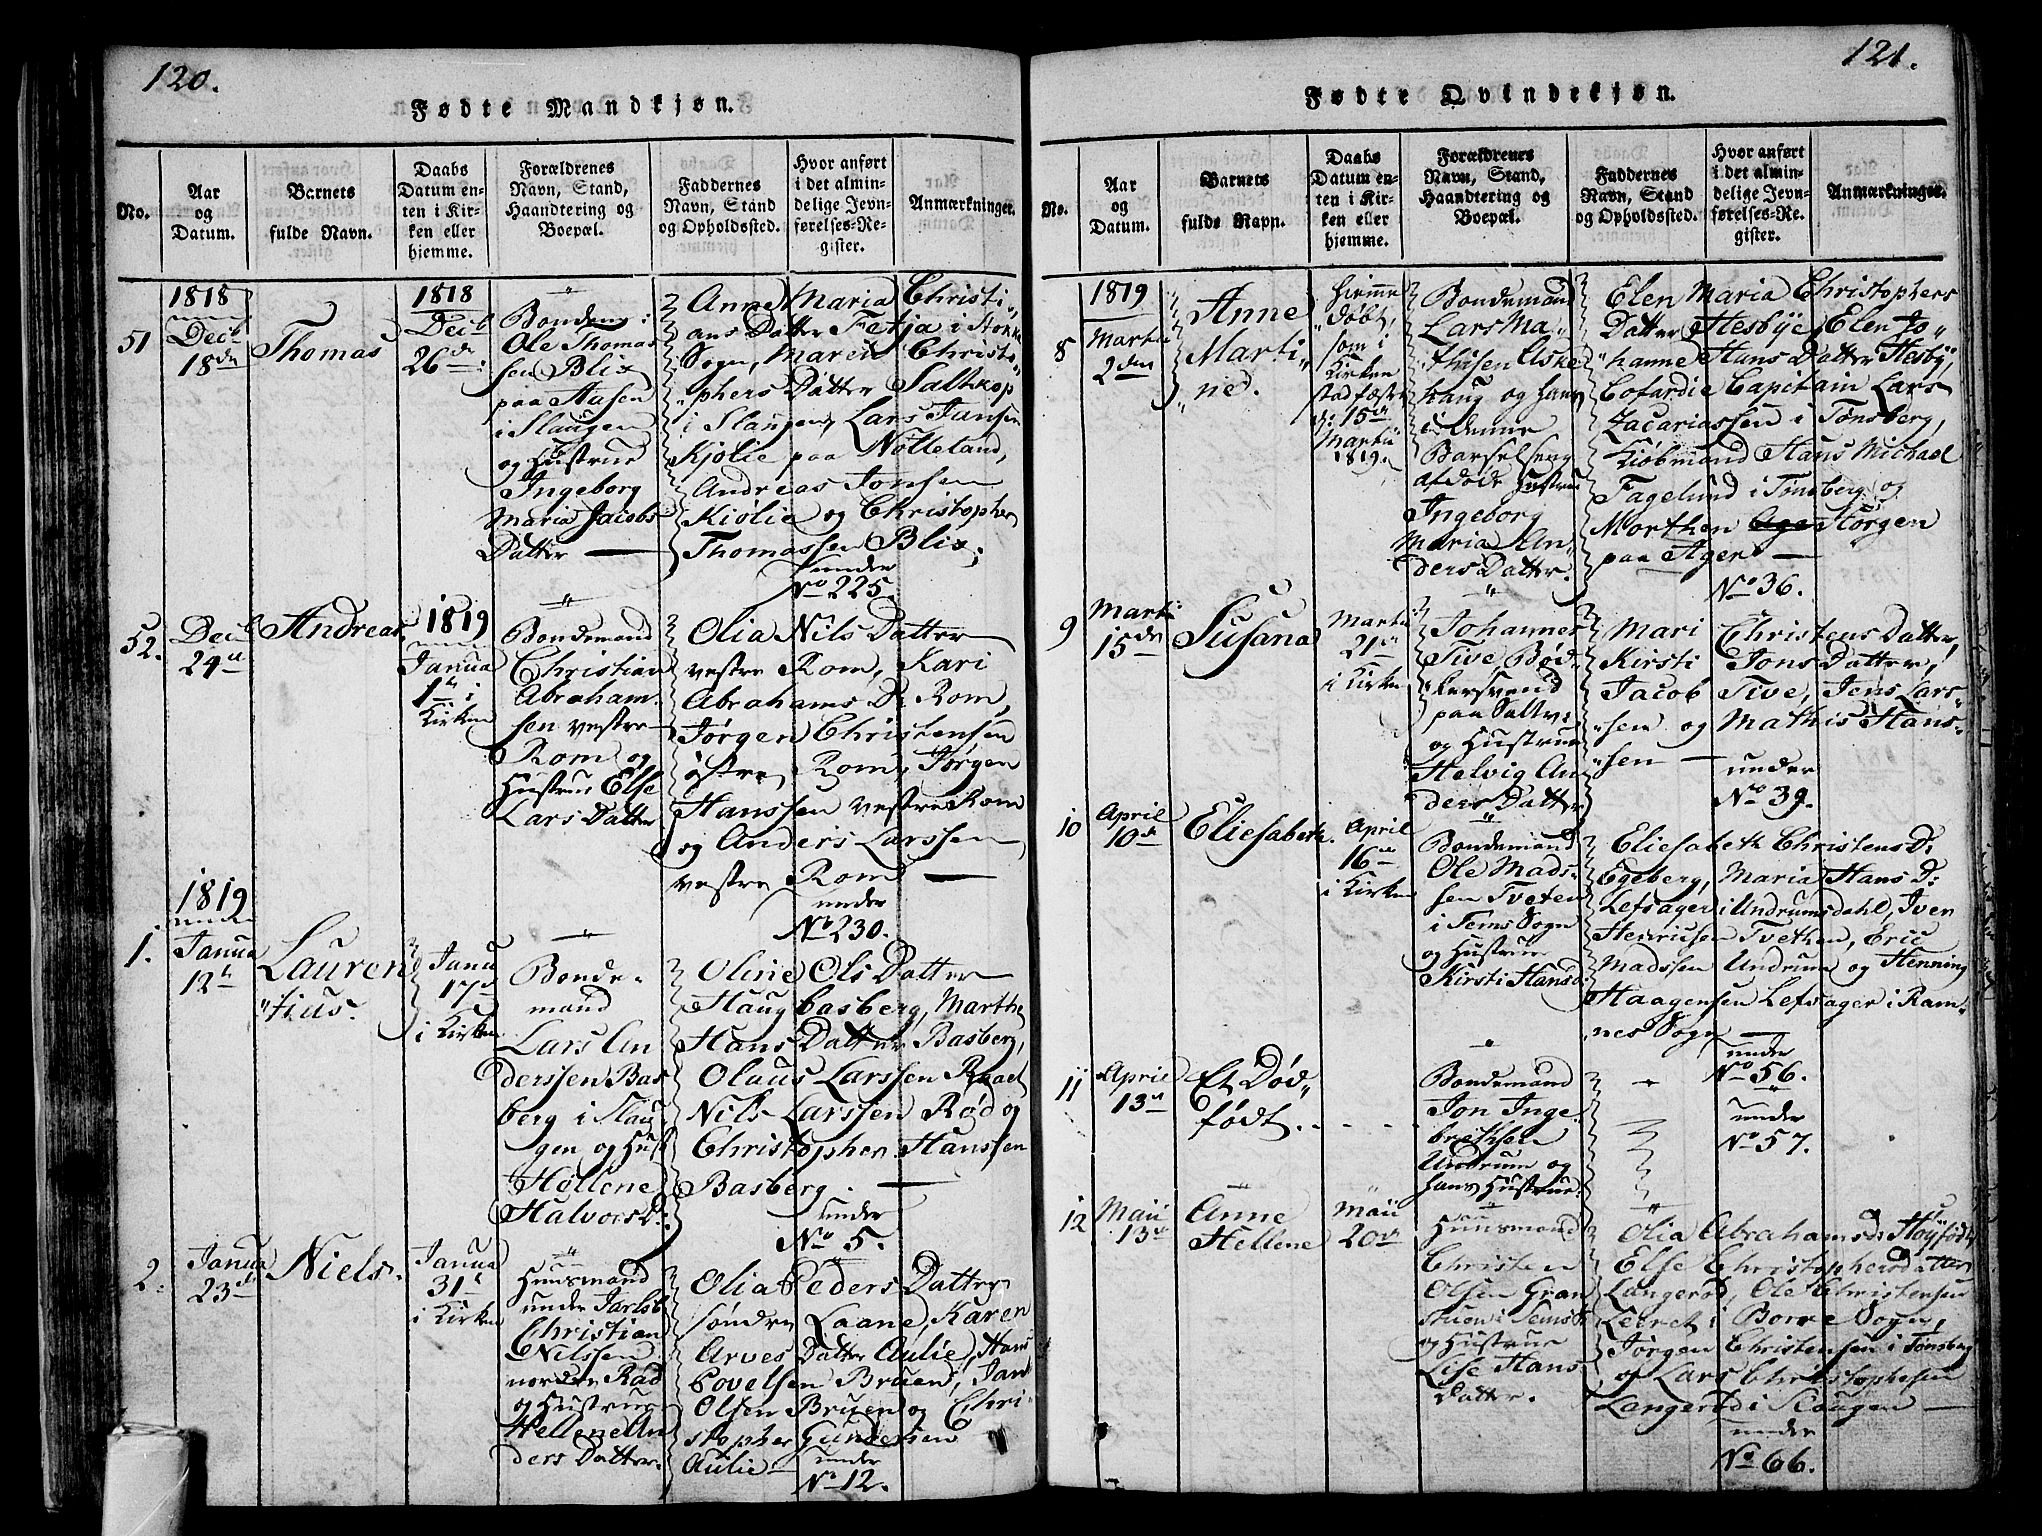 120.
Fødte Mandkjøn.
No.
Aar
og
Datum.
Barnets
fulde Navn.
Daabs
Datum en-
ten i Kir-
ken eller
hjemme.
Forældrenes
Navn, Stand,
Haandtering og
Boepæl.
Faddernes
Navn, Stand
og Opholdssted.
Hvor anført
i det almin-
delige Jevn-
førelses-Re-
gister.
Anmærkninger.
51
1818
Decb
18de
Thomas
1818
Decb
26de
Bondem:
Ole Thomas
sen Blix
paa Aasen
i Slaugen
og Hustrue
Ingeborg
Maria Jacobs
Datter —
Anne Maria Christi„
ans Datter Fetja i Stokke
Sogn, Maren Christo„
„phers Datter Saltkop
i Slaugen, Lars Jansen
Kjølie paa Nølleland,
Andreas Jonsen
Kiølie og Christopher
Thomassen Blix.
under
No 225.
52.
Decb
24de
Andreas
1819
Janua
1te i
Kirken
Bondemand
Christian
Abraham-
sen vestre
Rom og
Hustrue Else
Lars Datter
Olia Nils Datter
vestre Rom, Kari
Abrahams D: Rom,
Jørgen Christensen
østre Rom, Jørgen
Hanssen vestre Rom
og Anders Larssen
vestre Rom —
under
No 230.
1819
1.
Janua
12te
Lauren
„tius.
Janu
17de
i Kirken
Bonde-
mand
Lars An
derssen Bas
berg i Slau
gen og Hust
Hellene
Halvors D:
Oline Ols Datter
Haugbasberg, Marthe
Hans Datter Basberg,
Olaus Larssen Raael
Nils Larssen Rød og
Christopher Hanssen
Basberg. —
under
No 5.
2.
Janua
23de
Niels.
Janua
31te
i Kirken
Huusmand
under Jarlsb
Christian
Nilssen
nordre Rad
og Hustrue
Hellene An
ders Datter.
Olia Peders Datter
søndre Laane, Karen
Arves Datter Aulie, Hans
Povelsen Bruen, Jans
Olsen Bruen og Chri-
stopher Gundersen
Aulie —
under
No 12.
121.
Fødte Qvindekjøn.
No.
Aar
og
Datum.
Barnets
fulde Navn.
Daabs
Datum en-
ten i Kir-
ken eller
hjemme.
Forældrenes
Navn, Stand,
Haandtering og
Boepæl.
Faddernes
Navn, Stand
og Opholdssted.
Hvor anført
i det almin-
delige Jevn-
førelses-Re-
gister.
Anmærkninger.
8
1819
Martii
2den
Anne
Marti„
„ne.
Hiemme
døbt,
som i
Kirken
stadfæstet
d: 15de
Martii
1819.
Bondemand
Lars Ma„
thisen Aske
haug og hans
i denne
Barselseng
afdøde Hustrue
Ingeborg
Maria An„
ders Datter.
Elen Maria Christophers
Datter Hesbye, Elen Jo„
„hanne Hans Datter Hesby,
Cofardie Capitain Lars
Zacariassen i Tønsberg,
Kiøbmand Hans Michael
Fagelund i Tønsberg og
Morthen Jørgen
paa Ager —
No 36.
9
Martii
15de
Susana
Martii
21de
i Kirken
Johannes
Tive, Bød-
kersvend
paa Saltv:
og Hustrue
Helvig An
ders Datter
Mari Christens Datter,
Kirsti Jons Datter,
Jacob Tive, Jens Lars„
„sen og Mathis Hans-
„sen —
under
No 39.
10
April
10de
Eliesabeth.
April
16de
i Kirken
Bondemand
Ole Mads-
sen Tveten
i Sems Sogn
og Hustrue
Kirsti Hansd:
Eliesabeth Christens D:
Egeberg, Maria Hans D:
Lefsager i Undrumsdahl, Iven
Henricsen Tvethen, Eric
Madssen Undrum og Henning
Haagensen Lefsager i Ram„
nes Sogn —
under
No 56.
11
April
13de
Et Død„
født.
Bondemand
Jon Inge
brethsen
Undrum og
hans Hustrue.
under
No 57.
12
Maii
13de
Anne
Hellene
Maii
20de
Huusmand
Christen
Olsen Gran
stuen i Sems S:
og Hustrue
Lise Hans
Datter.
Olia Abrahamsd: Høyjød,
Else Christophersdatter
Langerød, Ole Christensen
Leeret i Borre Sogn,
Jørgen Christensen i Tønsberg
og Lars Christophersen
Langerød i Slaugen —
under
No 66.